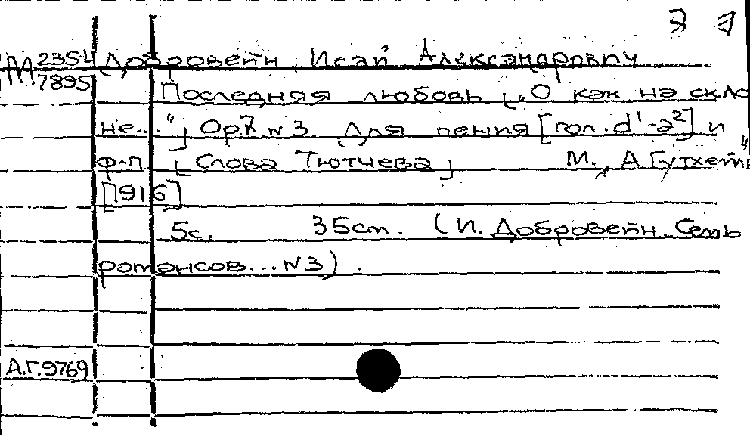 М 2354
7895
Добровейн Исай Александрович
Последняя любовь [„О как на скло
не..."] Op.7 N 3. Для пения [гол. d¹-a²] и
ф-п. [Слова Тютчева] М., А. Гутхейль"
[1916]
5с. 35см. (И. Добровейн. Семь
романсов... N3).
А.Г.9769